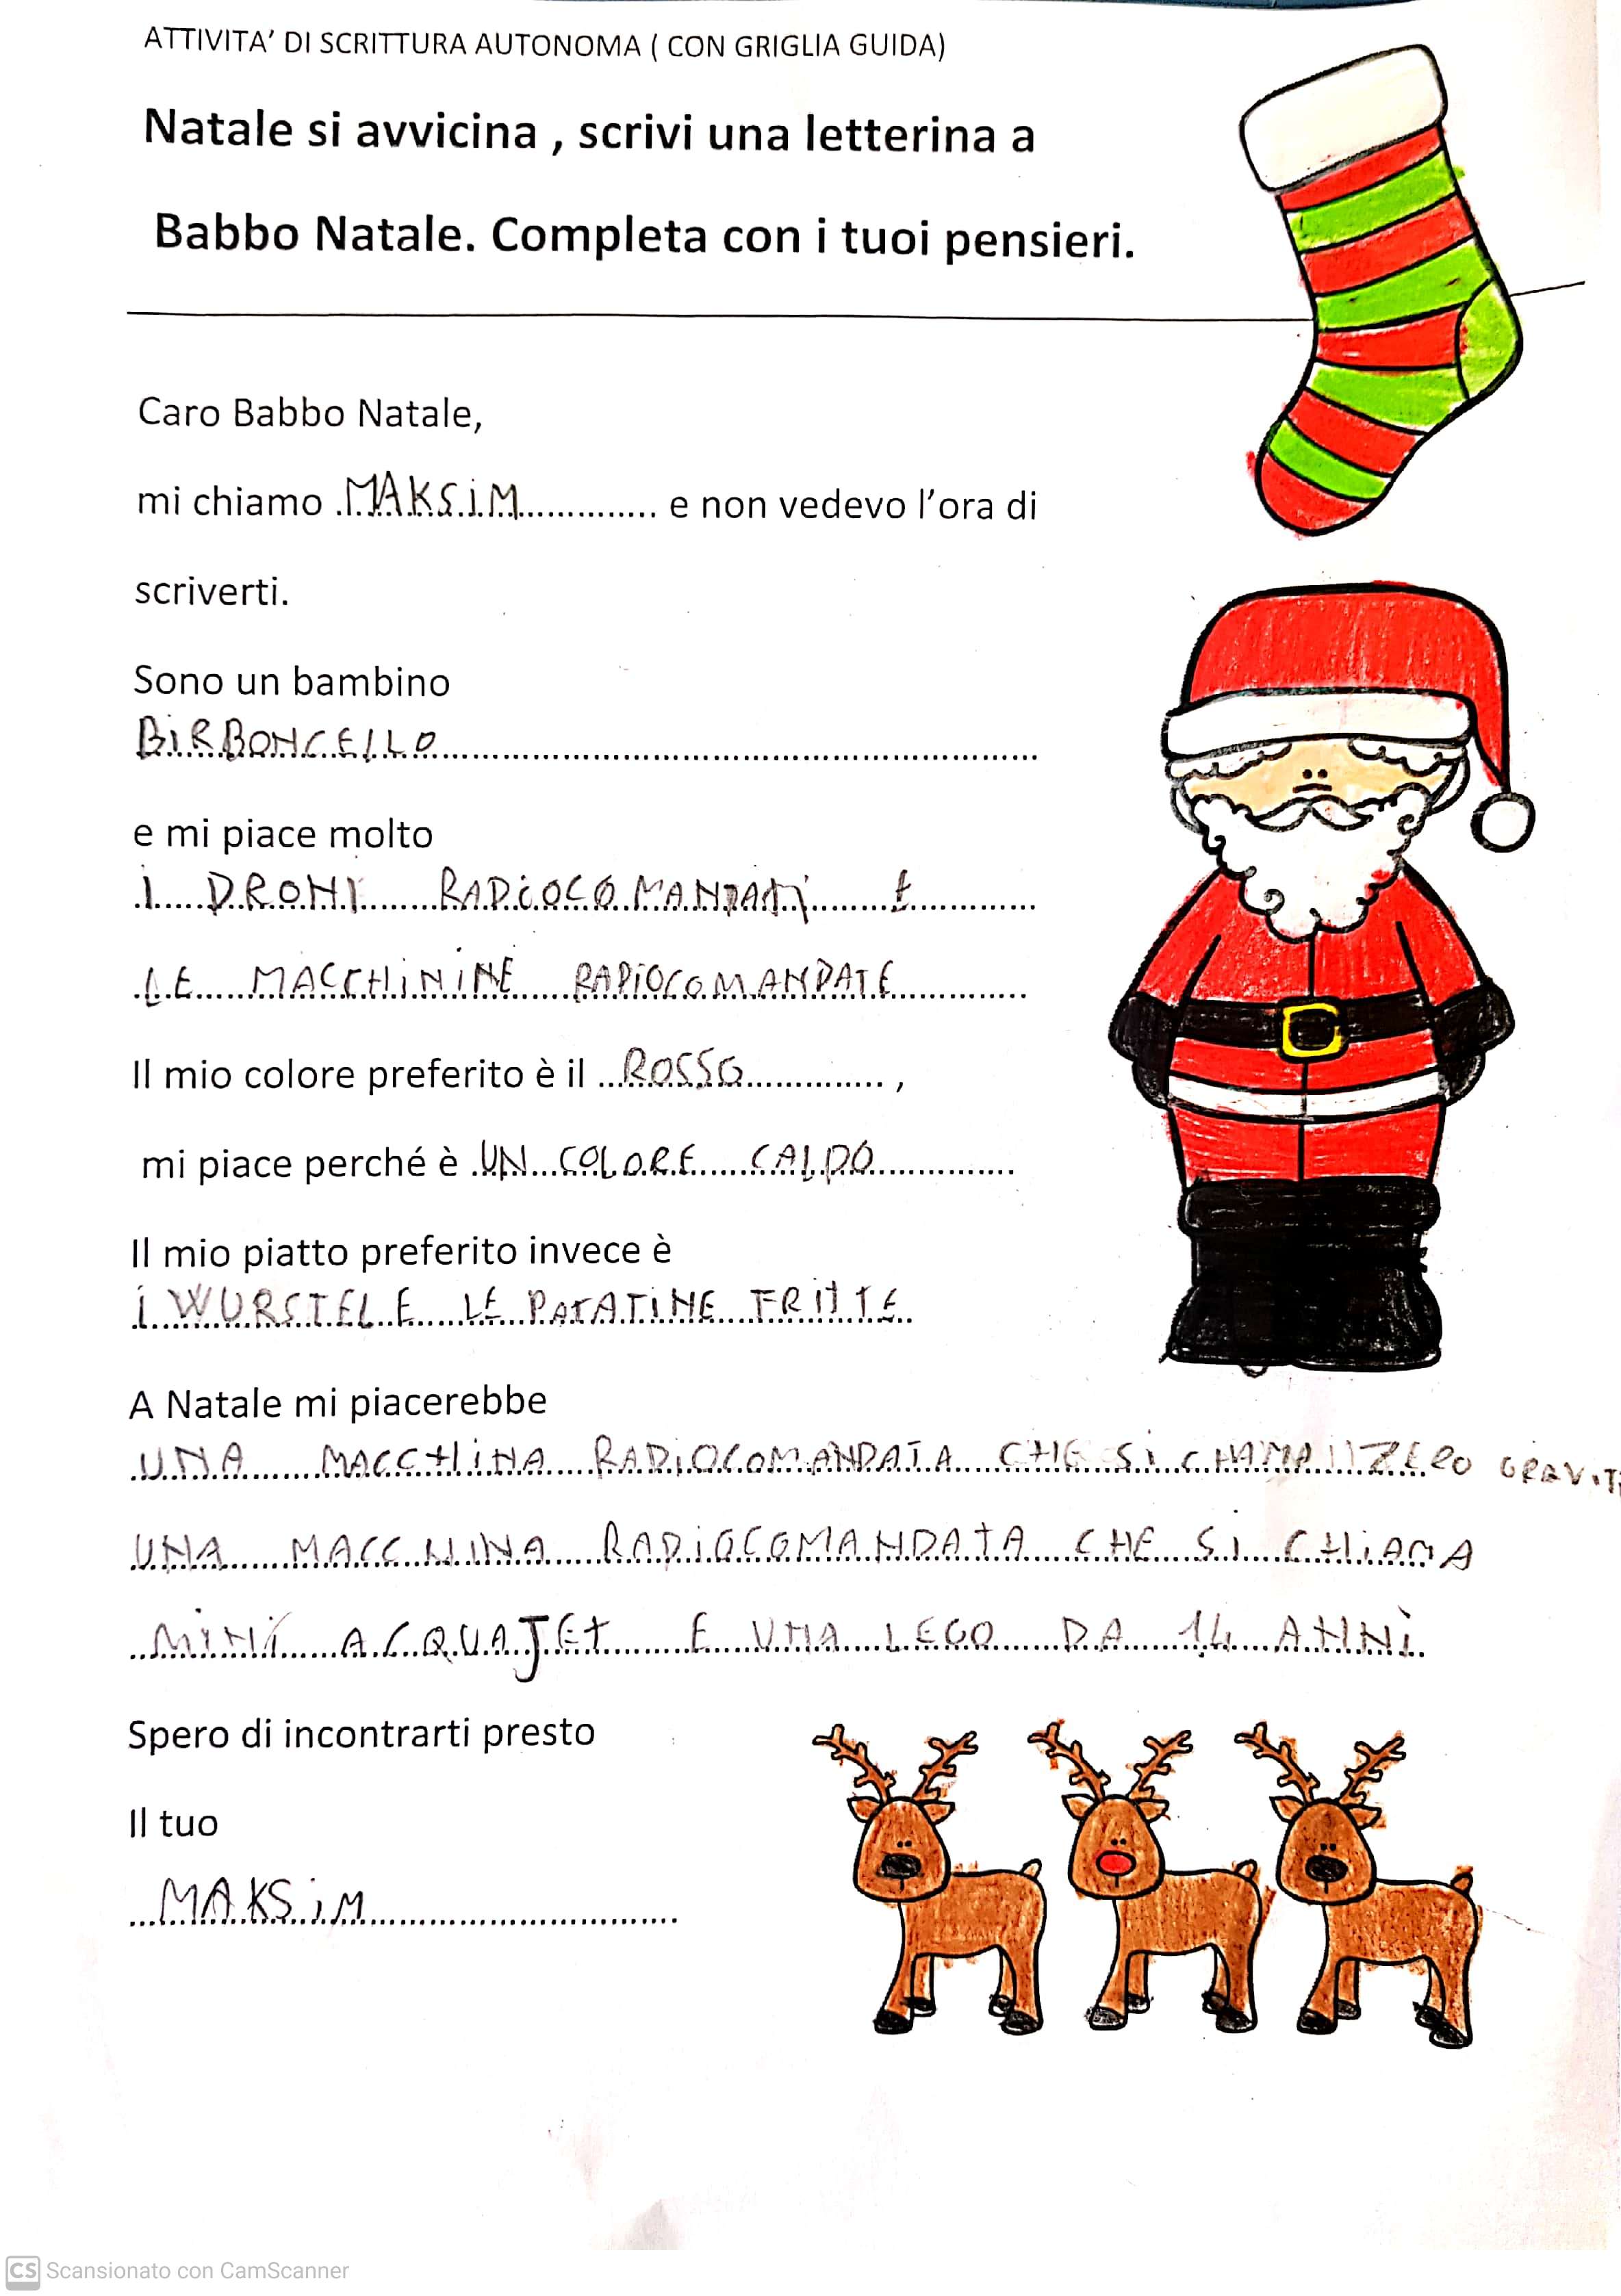 ATTIVITA' DI SCRITTURA AUTONOMA ( CON GRIGLIA GUIDA)
Natale si avvicina , scrivi una letterina a
Babbo Natale. Completa con i tuoi pensieri.
Caro Babbo Natale,
mi chiamo MAKSiM e non vedevo l'ora di
scriverti.
Sono un bambino
BiRBONCELLO
e mi piace molto
I DRONI RADiOCOMANDATi E
LE MACCHiNiNE RADiOCOMANDATE
Il mio colore preferito è il ROSSO ,
mi piace perché è UN COLORE CALDO
Il mio piatto preferito invece è
i WURSTEL E LE PATATiNE FRITTE
A Natale mi piacerebbe
UNA MACCHiNA RADiOCOMANDATA CHE Si ZERO
UNA MACCHINA RADiOCOMANDATA CHE Si CHiAMA
MiNi ACQUAJEt E UNA LEGO DA 14 ANNi
Spero di incontrarti presto
Il tuo
MAKSiM
CS Scansionato con CamScanner